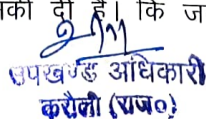 की दी है। कि ज
उपखण्ड अधिकारी
करौली (राज०)